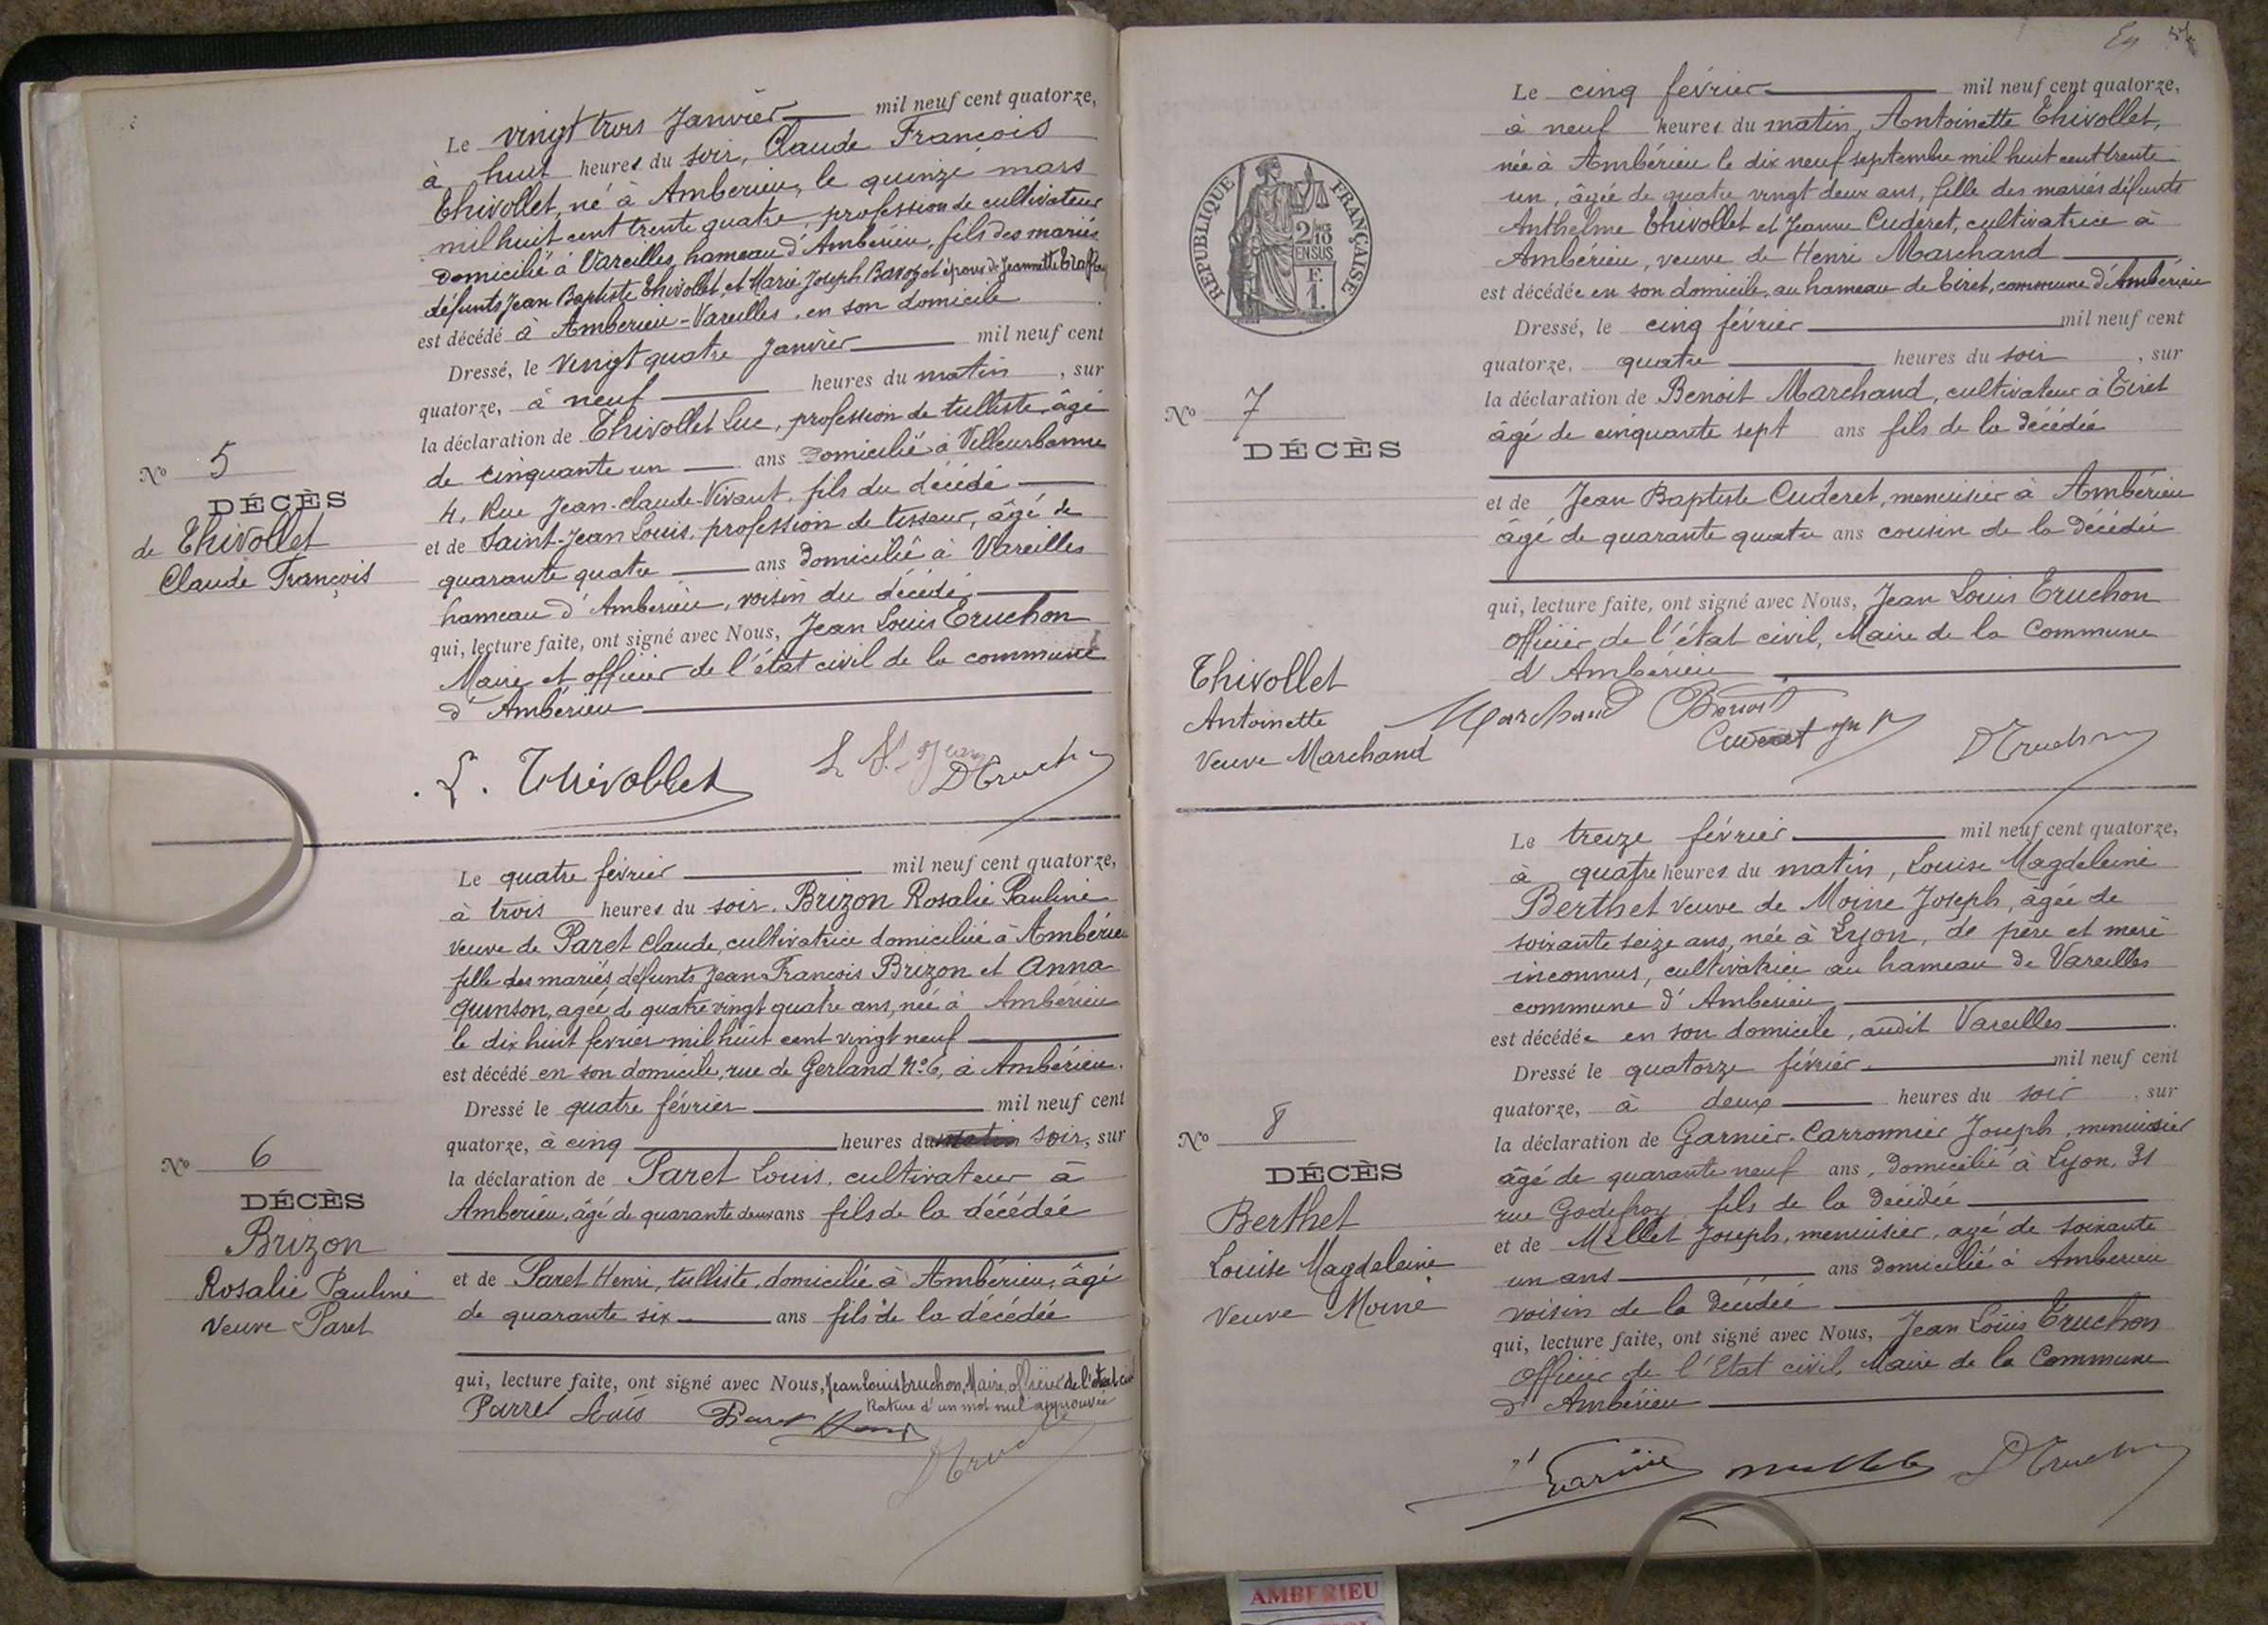 Le vingt trois Janvier mil neuf cent quatorze,
à huit heures du soir, Claude François
Thivollet, né à Amberieu, le quinze mars
mil huit cent trente quatre, profession de cultivateur
domicilié à Vareilles, hameau d'Amberieu, fils des mariés
défunts Jean Baptiste Thivollet, et Marie Joseph et époux de Jeannette
est décédé à Amberieu-Vareilles, en son domicile
Dressé, le vingt quatre Janvier mil neuf cent
quatorze, à neuf heures du matin, sur
la déclaration de Thivollet Luc, profession de tulliste, âgé
de cinquante un ans domicilié à Villeurbanne
4, Rue Jean-Claude-Vivant, fils du décédé
et de Saint-Jean Louis, profession de tisseur, âgé de
quarante quatre ans domicilié à Vareilles
hameau d'Amberieu, voisin du décédé,
qui, lecture faite, ont signé avec Nous, Jean Louis Truchon
Maire et officier de l'état civil de la commune
d'Ambérieu
No 5
DÉCÈS
de Thivollet
Claude François
L. Thivollet L St Jean DTruchon
Le quatre février mil neuf cent quatorze,
à trois heures du soir. Brizon Rosalie Pauline
veuve de Paret Claude, cultivatrice domiciliée à Ambérieu
fille des mariés défunts Jean François Brizon et Anna
Quinson, agée de quatre vingt quatre ans, née à Ambérieu
le dix huit février mil huit cent vingt neuf
est décédé en son domicile, rue de Gerland No 6, à Ambérieu.
Dressé le quatre février mil neuf cent
quatorze, à cinq heures du matin soir, sur
la déclaration de Paret Louis, cultivateur à
Ambérieu, âgé de quarante deux ans fils de la décédée
et de Paret Henri, tulliste, domicilié à Ambérieu, âgé
de quarante six ans fils de la décédée
qui, lecture faite, ont signé avec Nous, Jean Louis Truchon, Maire, officier de l'état civil
Rature d'un mot nul approuvée
No 6
DÉCÈS
Brizon
Rosalie Pauline
Veuve Paret
Parret Louis Paret Henri DTruchon
Le cinq février mil neuf cent quatorze,
à neuf heures du matin, Antoinette Thivollet,
née à Ambérieu le dix neuf septembre mil huit cent trente
un, âgée de quatre vingt deux ans, fille des mariés défunts
Anthelme Thivollet et Jeanne Cuderet, cultivatrice à
Ambérieu, veuve de Henri Marchand
est décédée en son domicile, au hameau de Tiret, commune d'Ambérieu
Dressé, le cinq février mil neuf cent
quatorze, quatre heures du soir, sur
la déclaration de Benoit Marchand, cultivateur à Tiret
âgé de cinquante sept ans fils de la décédée
et de Jean Baptiste Cuderet, menuisier à Ambérieu
âgé de quarante quatre ans cousin de la décédée
qui, lecture faite, ont signé avec Nous, Jean Louis Truchon
officier de l'état civil, Maire de la Commune
d'Ambérieu
RÉPUBLIQUE FRANÇAISE
2/10 EN SUS
F. 1.
No 7
DÉCÈS
Thivollet
Antoinette
Veuve Marchand
Marchand Benoit
Cuderet
DTruchon
Le treize février mil neuf cent quatorze,
à quatre heures du matin, Louise Magdeleine
Berthet veuve de Moine Joseph, âgée de
soixante seize ans, née à Lyon, de père et mère
inconnus, cultivatrice au hameau de Vareilles
commune d'Amberieu,
est décédée en son domicile, audit Vareilles
Dressé le quatorze février mil neuf cent
quatorze, à deux heures du soir, sur
la déclaration de Garnier-Carronnier Joseph, menuisier
âgé de quarante neuf ans, domicilié à Lyon, 31
rue Godefroy, fils de la décédée
et de Millet Joseph, menuisier, agé de soixante
un ans ans domicilié à Amberieu
voisin de la décédée
qui, lecture faite, ont signé avec Nous, Jean Louis Truchon
Officier de l'Etat civil, Maire de la Commune
d'Ambérieu
No 8
DÉCÈS
Berthet
Louise Magdeleine
Veuve Moine
DTruchon
AMBERIEU